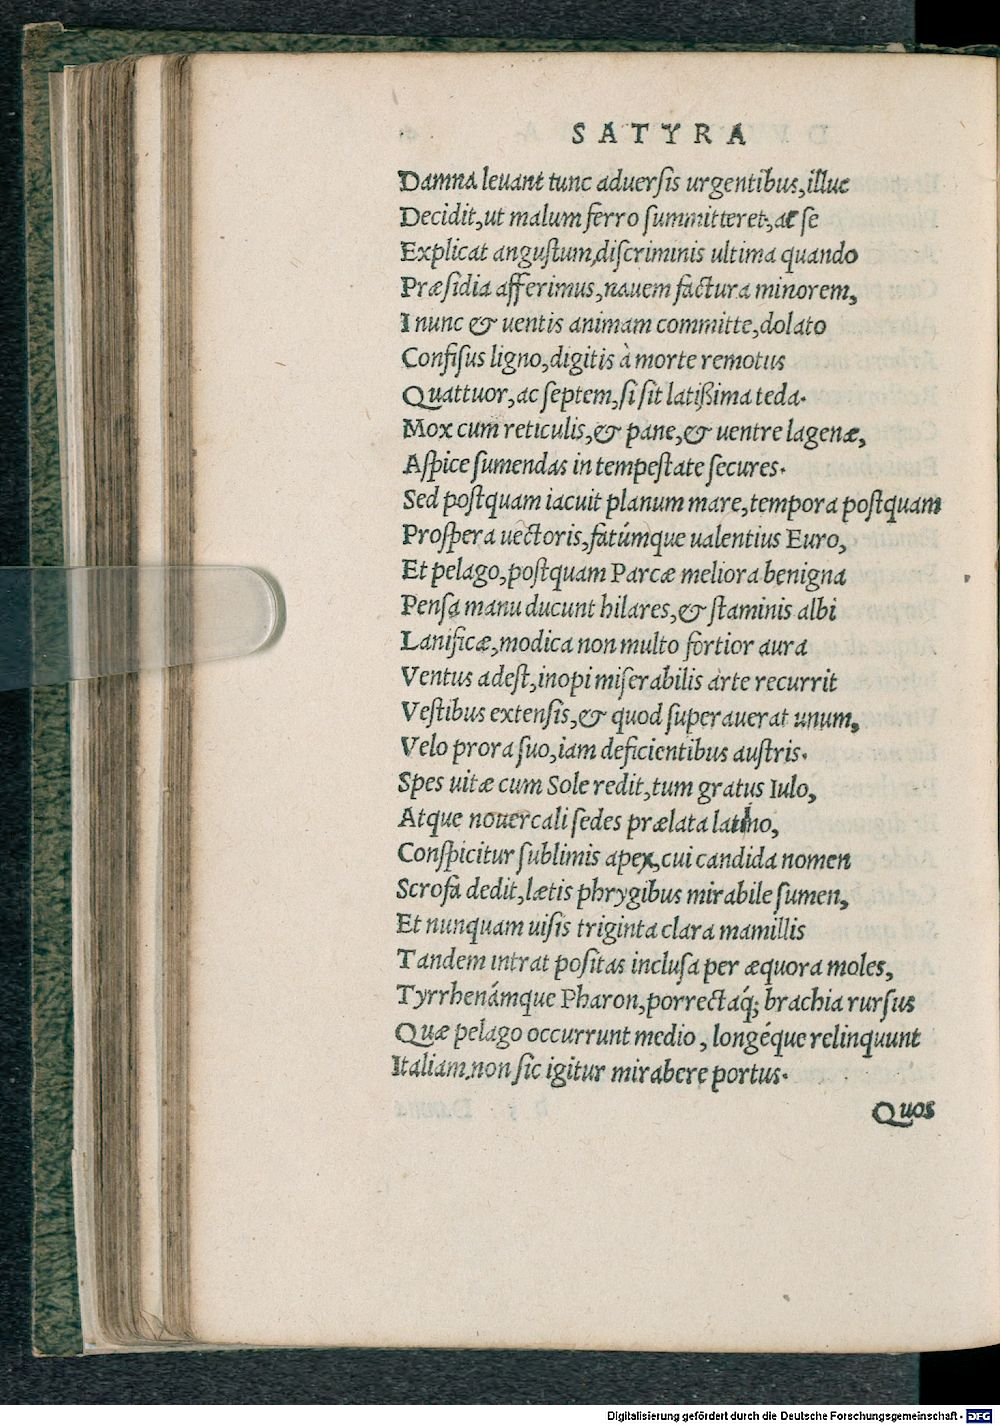 SATYRA
Damna leuant tunc aduersis urgentibus, illuc
Decidit, ut malum ferro summitteret, ac se
Explicat angustum, discriminis ultima quando
Præsidia afferimus, nauem factura minorem,
I nunc & uentis animam committe, dolato
Confisus ligno, digitis à morte remotus
Quattuor, ac septem, si sit latißima teda.
Mox cum reticulis, & pane, & uentre lagenæ,
Aspice sumendas in tempestate secures.
Sed postquam iacuit planum mare, tempora postquam
Prospera uectoris, fatúmque ualentius Euro,
Et pelago, postquam Parcæ meliora benigna
Pensa manu ducunt hilares, & staminis albi
Lanificæ, modica non multo fortior aura
Ventus adest, inopi miserabilis arte recurrit
Vestibus extensis, & quod superauerat unum,
Velo prora suo, iam deficientibus austris.
Spes uitæ cum Sole redit, tum gratus Iulo,
Atque nouercali sedes prælata latino,
Conspicitur sublimis apex, cui candida nomen
Scrofa dedit, lætis phrygibus mirabile sumen,
Et nunquam uisis triginta clara mamillis
Tandem intrat positas inclusa per æquora moles,
Tyrrhenámque Pharon, porrectaq́; brachia rursus
Quæ pelago occurrunt medio, longéque relinquunt
Italiam, non sic igitur mirabere portus.
Quos
Digitalisierung gefördert durch die Deutsche Forschungsgemeinschaft - DFG